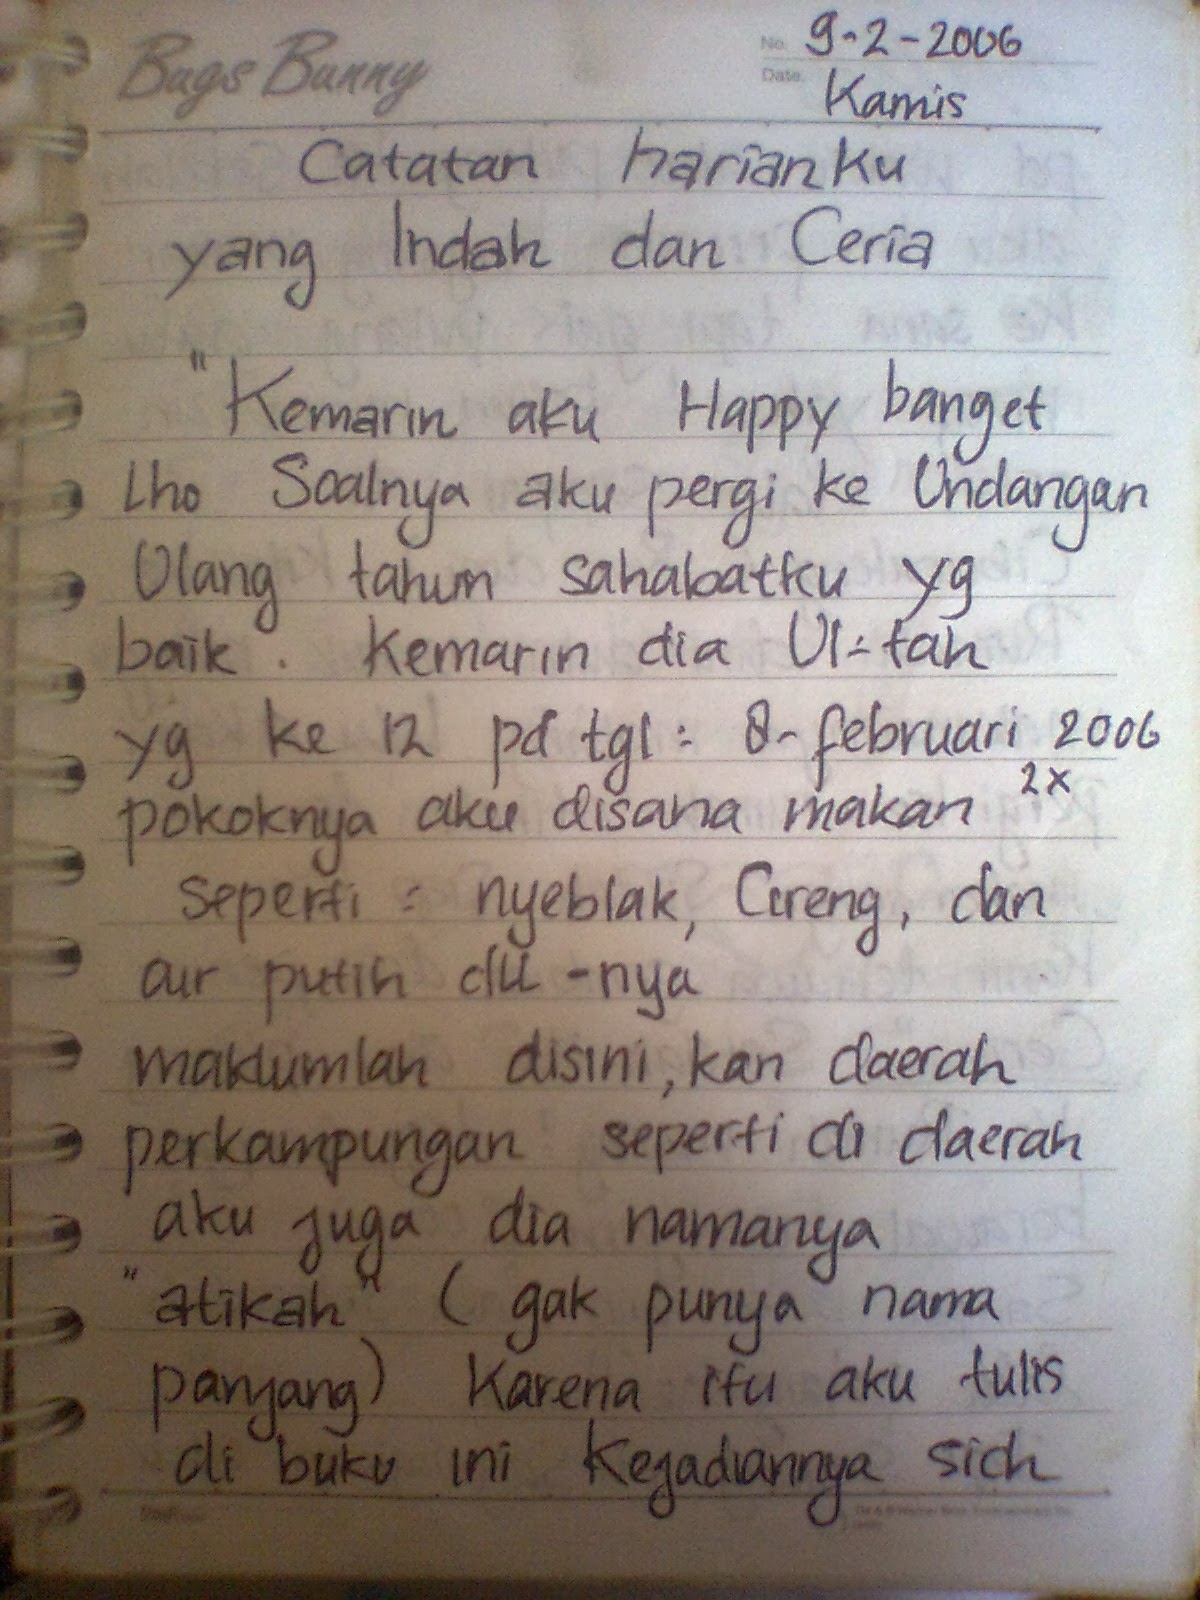 Bugs Bunny
No. 9-2-2006
Date. Kamis
Catatan harianku
yang Indah dan Ceria
"Kemarin aku Happy banget
Lho Soalnya aku pergi ke Undangan
Ulang tahun sahabatku yg
baik. Kemarin dia Ul-tah
yg ke 12 pd tgl: 8-februari 2006
pokoknya aku disana makan 2x
seperti: nyeblak, Cireng, dan
air putih dll-nya
maklumlah disini, kan daerah
perkampungan seperti di daerah
aku juga dia namanya
"atikah" (gak punya nama
panjang) Karena itu aku tulis
di buku ini Kejadiannya sich